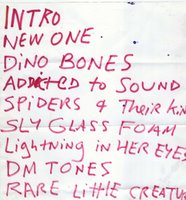 INTRO
NEW ONE.
DINO BONES
ADDICTED to SOUND
SPIDERS & Their kin
SLY GLASS FOAM
Lightning in HER EYES
DM TONES
RARE Little CREATU